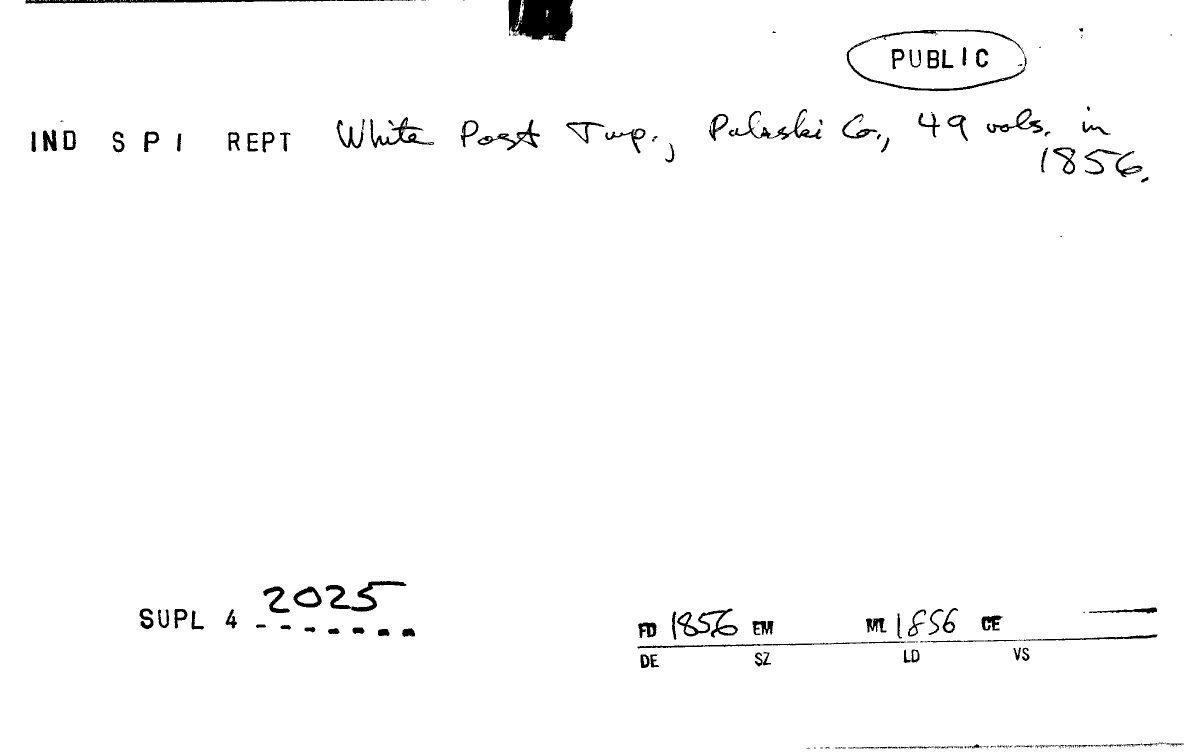 PUBLIC
IND S P I REPT White Post Twp., Pulaski Co., 49 vols. in
1856.
SUPL 4 2025
FD 1856 EM ML 1856 CE
DE SZ LD VS